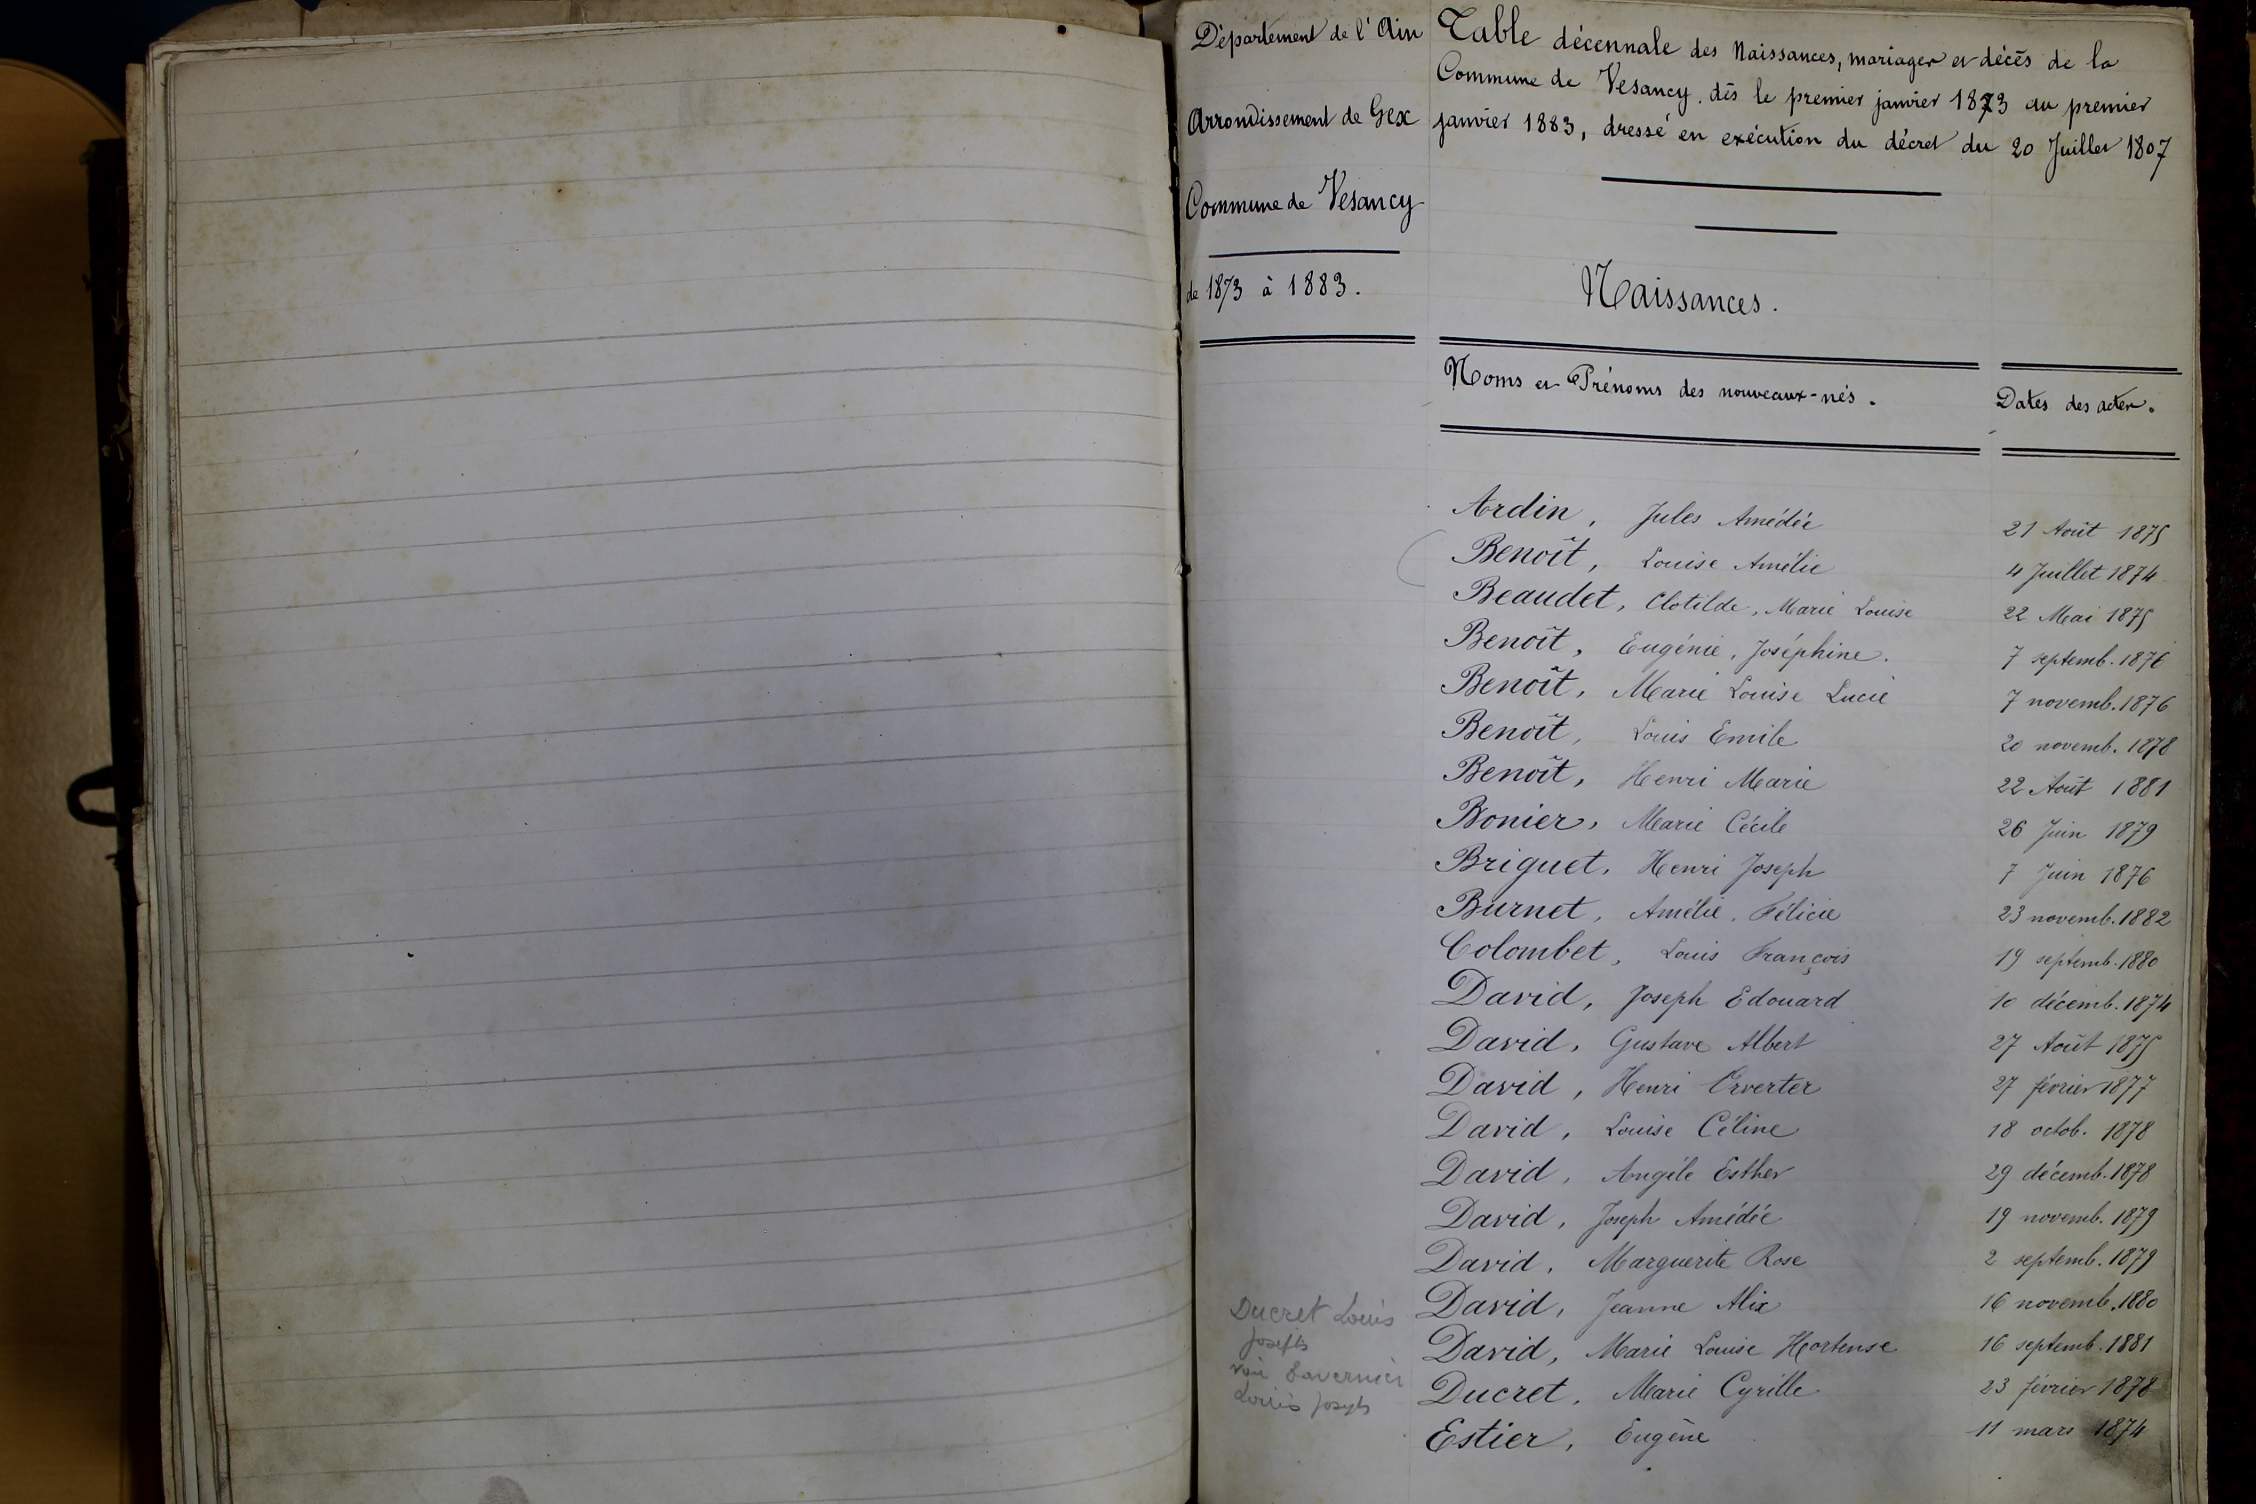 Département de l'Ain
Arrondissement de Gex
Commune de Vesancy
de 1873 à 1883.
Table décennale des Naissances, mariages et décès de la
Commune de Vesancy, dès le premier janvier 1873 au premier
janvier 1883, dressé en exécution du décret du 20 Juillet 1807
Naissances.
Noms et Prénoms des nouveaux-nés. Dates des actes.
Ardin, Jules Amédée 21 Août 1875
Benoît, Louise Amélie 4 Juillet 1874
Beaudet, Clotilde, Marie Louise 22 Mai 1875
Benoît, Eugénie, Joséphine. 7 septemb. 1876
Benoît, Marie Louise Lucie 7 novemb. 1876
Benoît, Louis Emile 20 novemb. 1878
Benoît, Henri Marie 22 Août 1881
Bonier, Marie Cécile 26 Juin 1879
Briguet, Henri Joseph 7 Juin 1876
Burnet, Amélie, Félicie 23 novemb. 1882
Colombet, Louis François 19 septemb. 1880
David, Joseph Edouard 10 décemb. 1874
David, Gustave Albert 27 Août 1875
David, Henri 27 février 1877
David, Louise Céline 18 octob. 1878
David, Angèle Esther 29 décemb. 1878
David, Joseph Amédée 19 novemb. 1879
David, Marguerite Rose 2 septemb. 1879
David, Jeanne Alix 16 novemb. 1880
David, Marie Louise Hortense 16 septemb. 1881
Ducret, Marie Cyrille 23 février 1878
Estier, Eugène 11 mars 1874
Ducret Louis
Joseph
voir Savernier
Louis Joseph